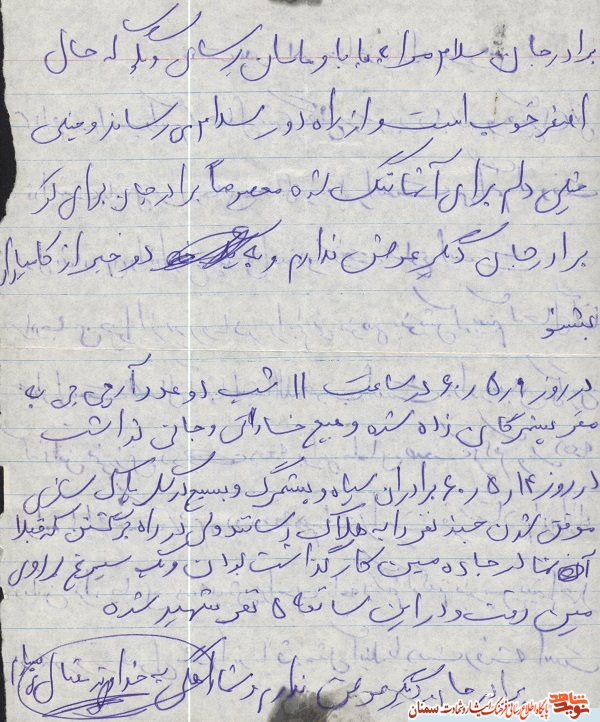 برادر جان سلام مرا به بابا و مامان برسان و بگو که حال
اصغر خوب است و از راه دور سلام می رساند و خیلی
خیلی دلم برای آشما تنگ شده مخصوصاً برادر جان برای تو
برادر جان دیگر عرضی ندارم و دو خبر از کامیاران
بشنو
در روز ۹ ر ۵ ر ۶۰ در ساعت ۱۱ شب دو عدد آرپی جی به
مقر پیشمرگان زده شده و هیچ خساراتی و جانی نداشت
در روز ۱۴ ر ۵ ر ۶۰ برادران سپاه و پیشمرگ و بسیج در یک پاک سازی
موفق شدن چند نفر را به هلاکت رسانند ولی در راه برگشتن که قبلا
آنها در جاده مین کار گذاشت بدن و یک سیمرغ بر روی
مین رفت و در این سانحه ۵ نفر شهید شده
برادر جان دیگر عرضی ندارم و شما را به خدا می سپارم
شاهد
نوید
پایگاه اطلاع رسانی فرهنگ ایثار و شهادت سمنان